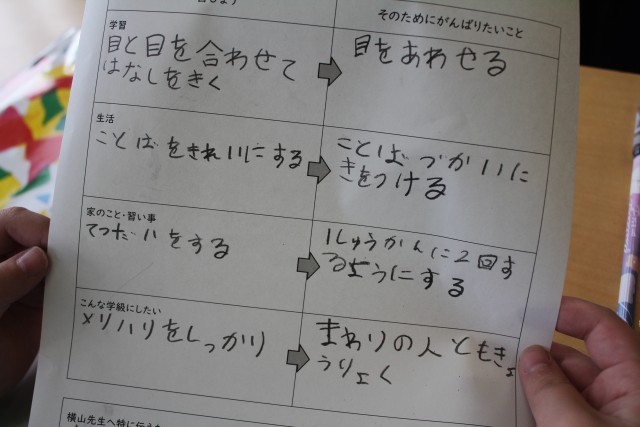 そのためにがんばりたいこと
学習
目と目を合わせて
はなしをきく
目をあわせる
生活
ことばをきれいにする
ことばづかいに
きをつける
家のこと・習い事
てつだいをする
1しゅうかんに2回す
るようにする
こんな学級にしたい
メリハリをしっかり
まわりの人ともきょ
うりょく
横山先生へ特に伝えた